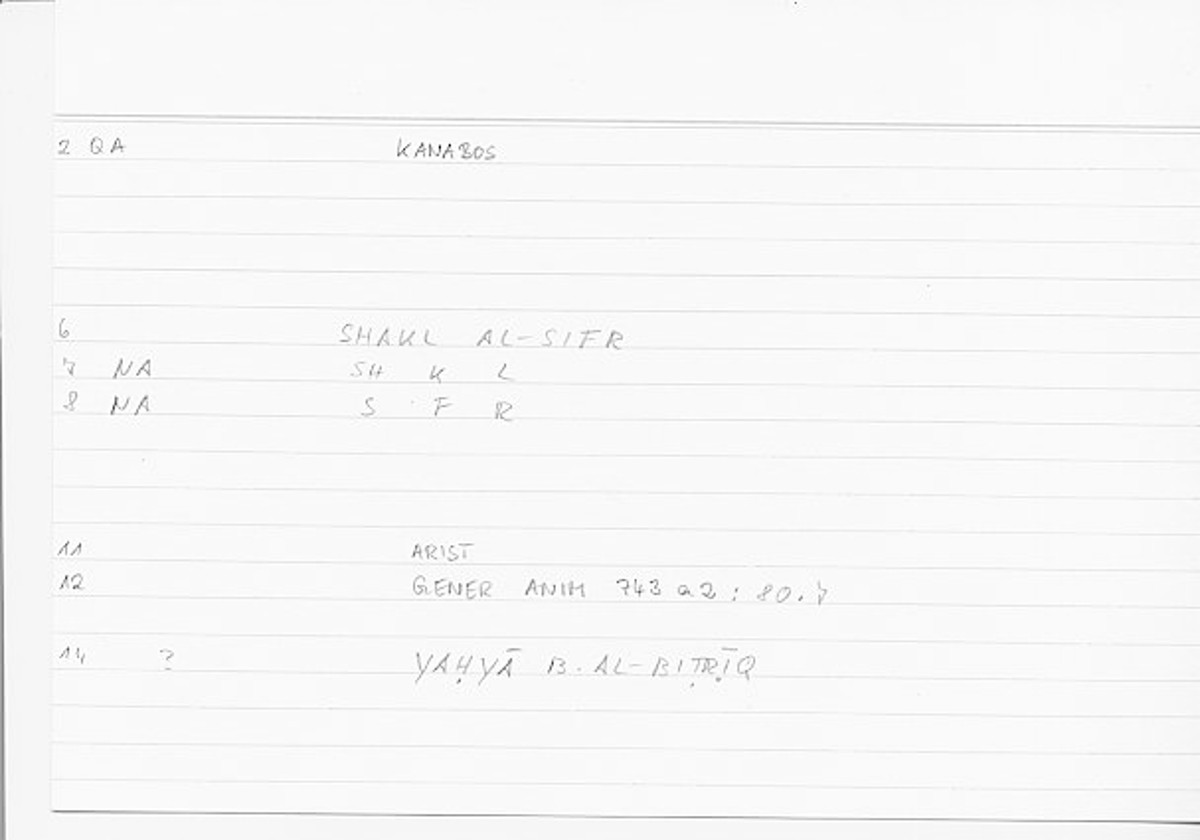 2 QA KANABOS
6 SHAKL AL-SIFR
7 NA SH K L
8 NA S F R
11 ARIST
12 GENER ANIM 743 a2 : 80.7
14 ? YAḤYĀ B. AL-BIṬRĪQ